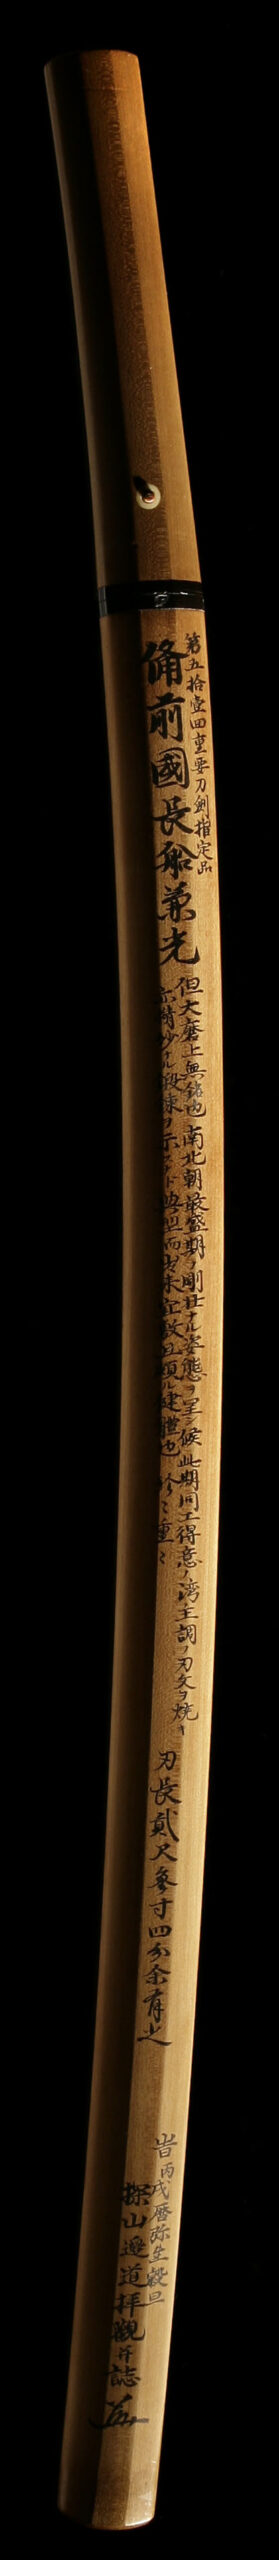 第五拾壹回重要刀剣指定品
備前國長船兼光
但大磨上無銘也 南北朝最盛期ノ剛壮ナル姿態ヲ呈シ候 此期同工得意ノ湾主調ノ刃文ヲ焼キ
示精妙ナル鍛錬ヲ示ス 典型而 健體也 珍〻重〻
刃長貳尺参寸四分余有之
旹丙戌暦弥生穀旦
探山邉道拝觀并誌